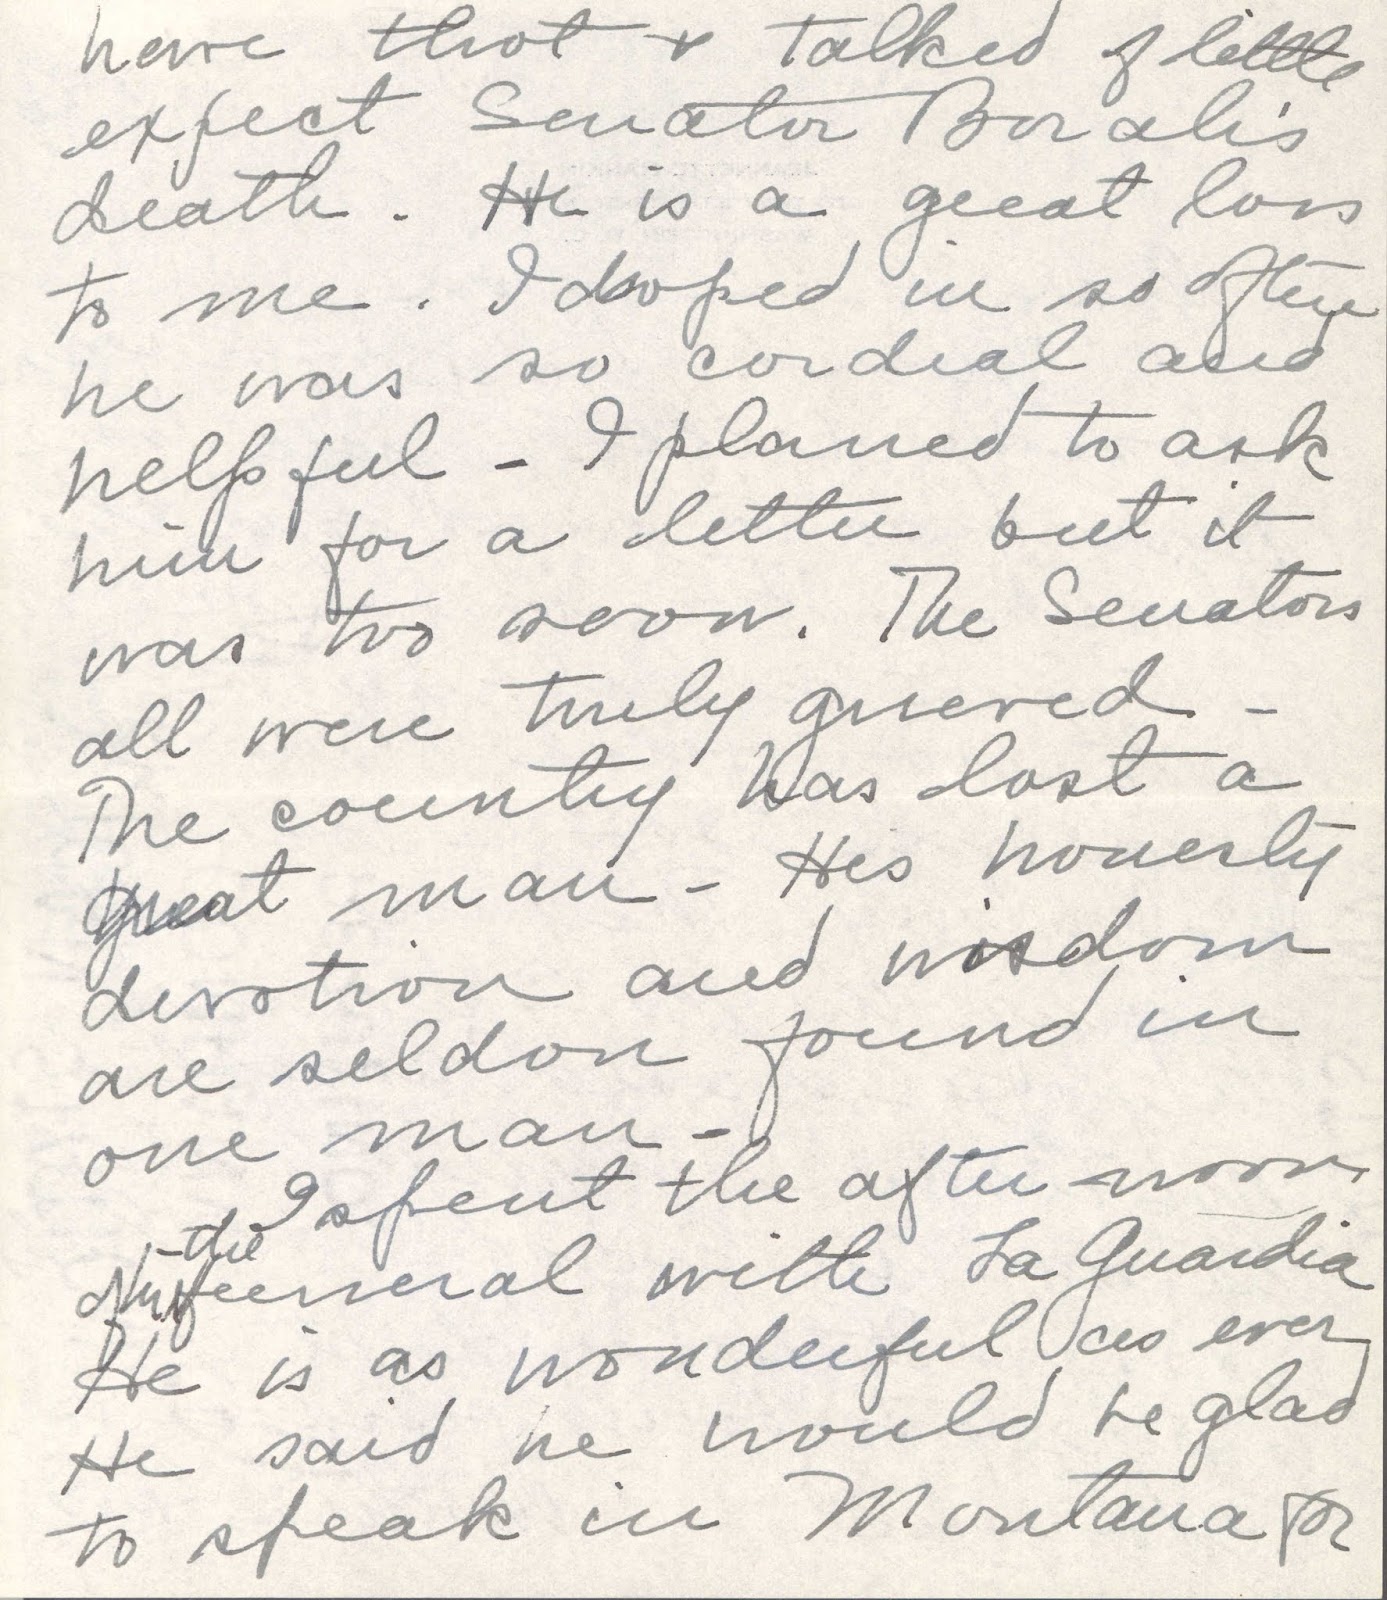 have thot & talked of little
expect Senator Borah's
death. He is a great loss
to me. I droped in so often
he was so cordial and
helpful - I planed to ask
him for a letter but it
was too soon. The Senators
all were truly grieved -
The country has lost a
great man - His honesty
devotion and wisdom
are seldon found in
one man -
I spent the after noon
of the funeral with La Guardia
He is as wonderful as ever
He said he would be glad
to speak in Montana for